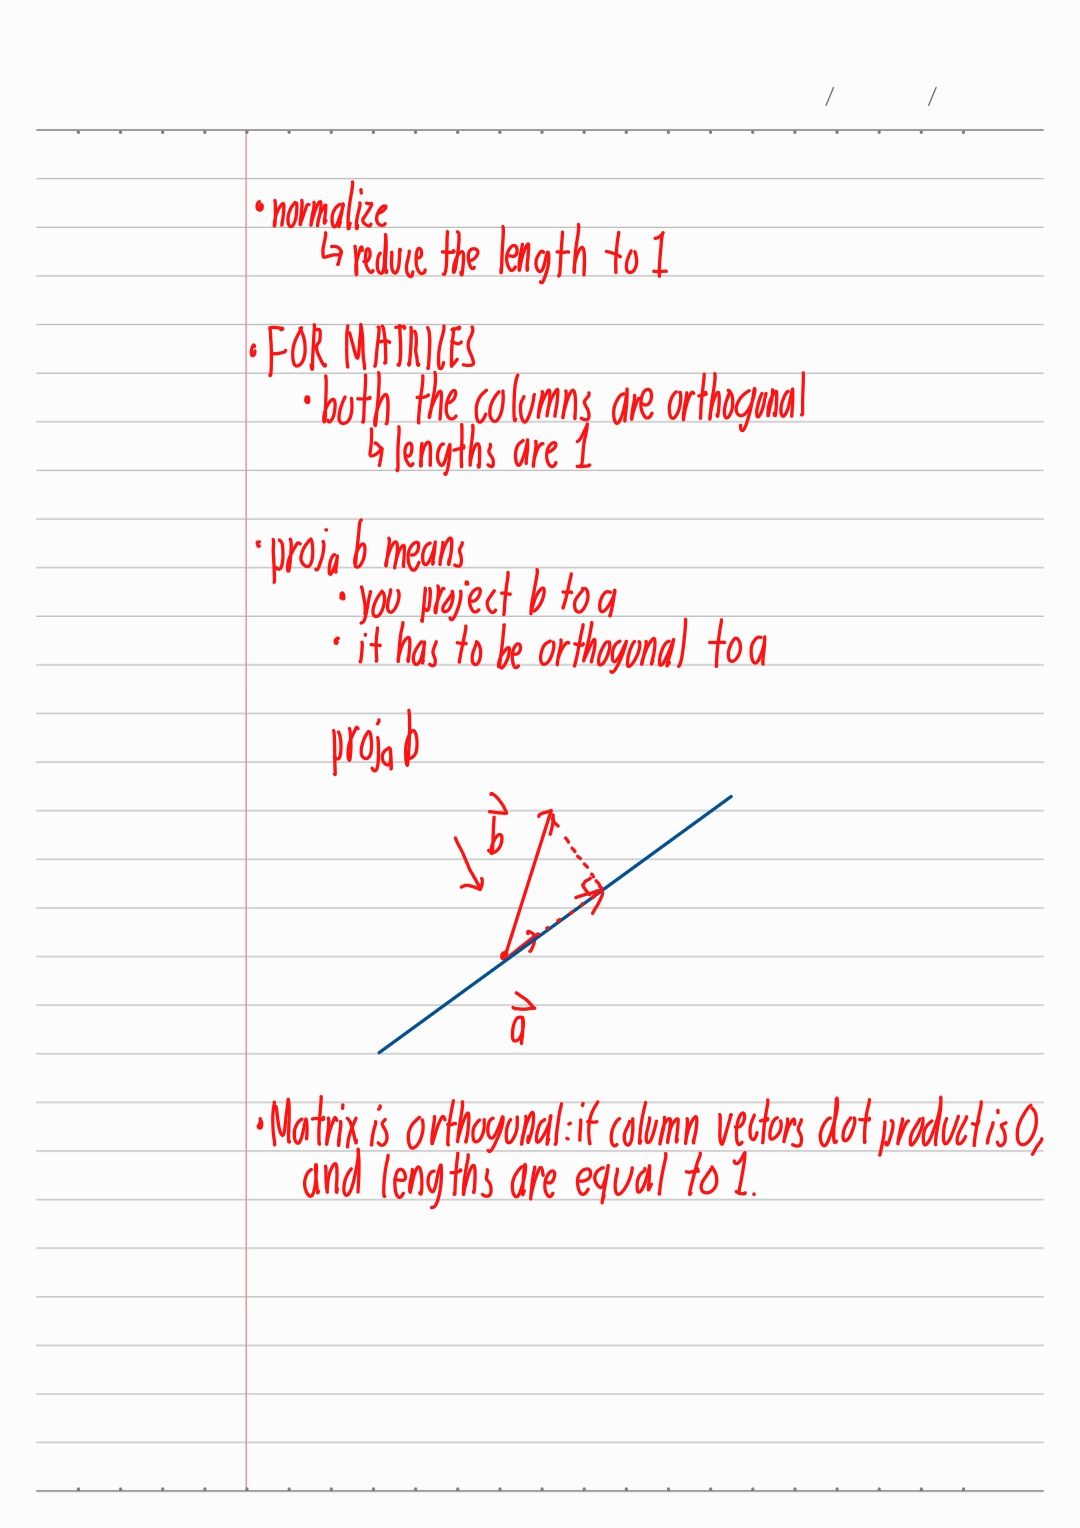 / /
• normalize
↳ reduce the length to 1
• FOR MATRICES
• both the columns are orthogonal
↳ lengths are 1
• projₐ b means
• you project b to a
• it has to be orthogonal to a
projₐ b
b
a
• Matrix is orthogonal: if column vectors dot product is 0,
and lengths are equal to 1.